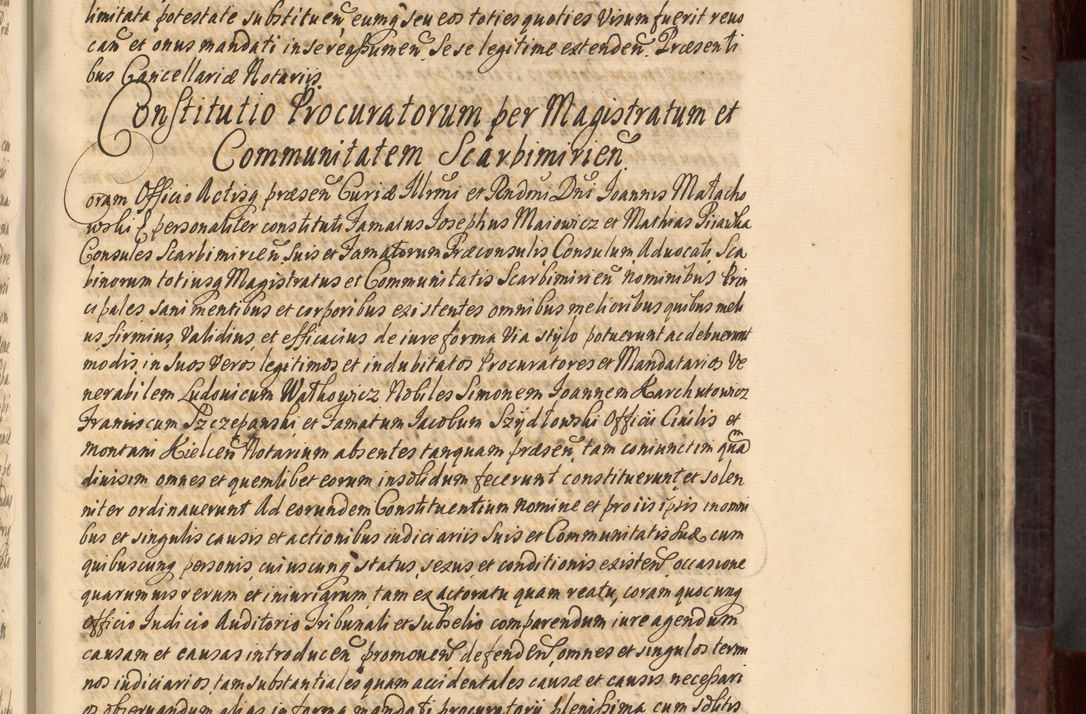 limitata potestate substituen̄ eumq́ seu eos toties quoties Visum fuerit revo
can̄ et onus mandati in se reaſsumen̄. Se se legitime extenden̄. Præsenti
bus Cancellariæ Notariis.
Constitutio Procuratorum per Magistratum et
Communitatem Scarbimirien̄
Coram Officio Actisq præsen̄ Curiæ Illrmi et Rndmi Dni Joannis Małacho
wski p personaliter constituti Famatus Josephus Maiowicz et Mathias
Consules Scarbimirien̄ Suis et Famatorum Præconsulis Consulum Advocati Sca
binorum totiusq Magistratus et Communitatis Scarbimirien̄ nominibus Prin
cipales sani mentibus et corporibus existentes omnibus melioribus quibus meli
us firmius Validius et efficacius de iure forma Via stylo potuerunt ac debuerunt
modis, in Suos Veros legitimos et indubitatos Procuratores et Mandatarios Ve
nerabilem Ludovicum Wątkowicz Nobiles Simonem Joannem Karchutowicz
Franiscum Szczepanski et Famatum Jacobum Szydłowski Officii Civilis et
montani Kielcen̄ Notarium absentes tanquam præsen̄, tam coniunctim quam
divisim omnes et quemlibet eorum insolidum fecerunt constituerunt et solen
niter ordinaverunt Ad eorundem Constituentium nomine et pro iis ipsis in omni
bus et singulis causis et actionibus iudiciariis Suis et Communitatis Suæ cum
quibuscunq personis, cuiuscunq status, sexus et conditionis existen̄, occasione
quarumvis rerum et iniuriarum, tam ex actoratu quam reatu, coram quocunq
Officio Judicio Auditorio Tribunali et Subselio comparendum iure agendum
causam et causas introducen̄ promoven̄ defenden̄, omnes et singulos termi
nos iudiciarios, tam substantiales quam accidentales causæ et causis neceſsari
os observandum alias in forma mandati procuratorii pleniſsima cum solitis